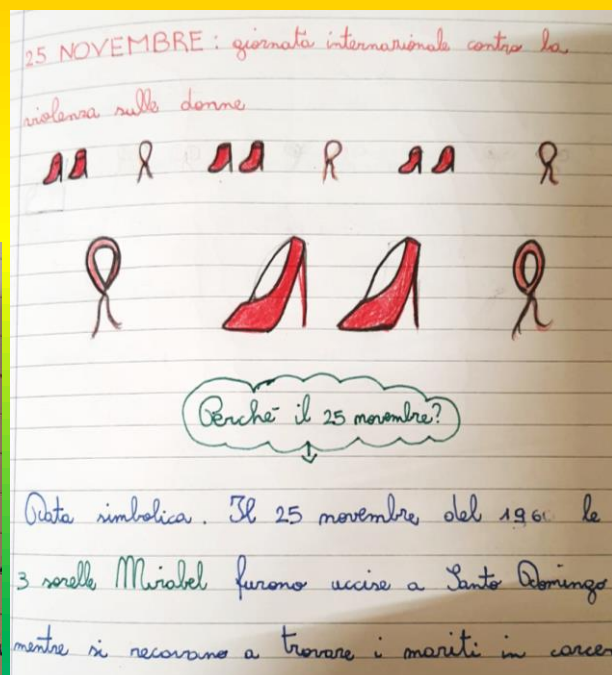 25 NOVEMBRE: giornata internazionale contro la
violenza sulle donne
Perché il 25 novembre?
Data simbolica. Il 25 novembre del 1960 le
3 sorelle Mirabel furono uccise a Santo Domingo
mentre si recavano a trovare i mariti in carcer